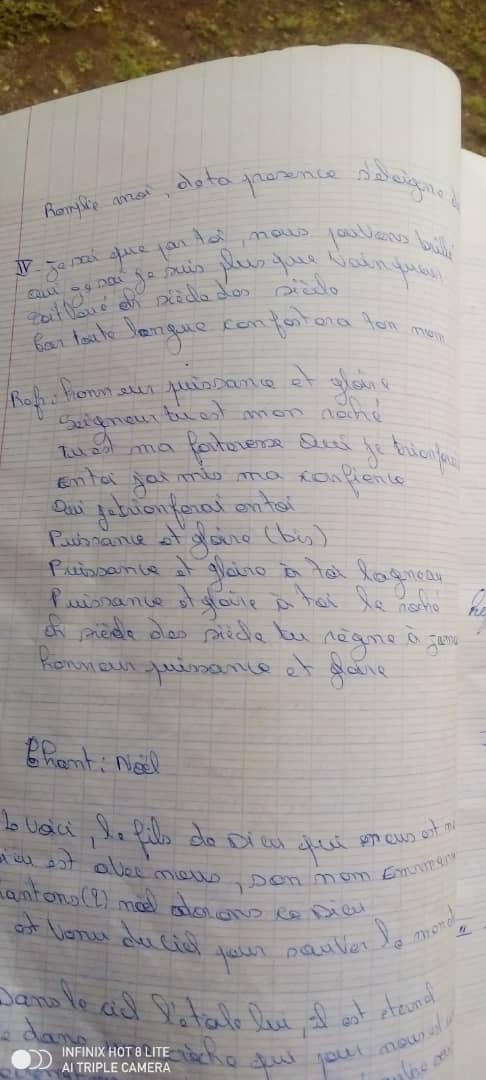 Remplie moi, de ta presence s'eloigne
IV - je sai que par toi, nous pouvons brille
oui je sai je suis plus que vainqueur
soit loué de siècle des siècle
Car toute langue confessera ton nom
Ref: honneur puissance et gloire
Seigneur tu est mon roché
Tu est ma forteresse Oui je trionferai
En toi j'ai mis ma confience
Oui je trionferai en toi
Puissance et gloire (bis)
Puissance et gloire à toi l'agneau
Puissance et gloire à toi le roché
de siècle des siècle tu règne à jama
honneur puissance et gloire
Chant: Noël
Le Voici, le fils de Dieu qui nous est né
ieu est avec nous, son nom Emman
hantons (2) noel adorons ce Dieu
est venu du ciel pour sauver le mond
Dans le ciel l'etoile lui, il est eternel
dans crèche qui pour nous
INFINIX HOT 8 LITE
AI TRIPLE CAMERA